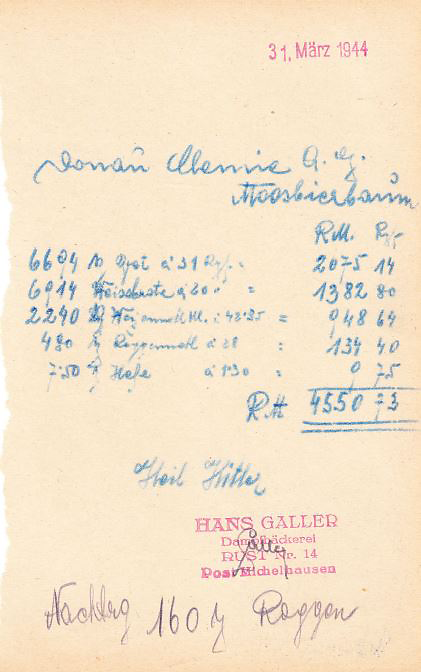 31. März 1944
Donau Chemie A. G.
Moosbierbaum
R.M. Rpf.
6694 kg Brot à 31 Rpf. = 2075 14
6914 Weissbrote à 20 " = 1382 80
2240 kg Weizenmehl à 42.35 = 948 64
480 kg Roggenmehl à 28 = 134 40
7.50 kg Hefe à 1.30 9 75
RM 4550 73
Heil Hitler
HANS GALLER
Dampfbäckerei
Galler
RUST Nr. 14
Post Michelhausen
160 kg Roggen